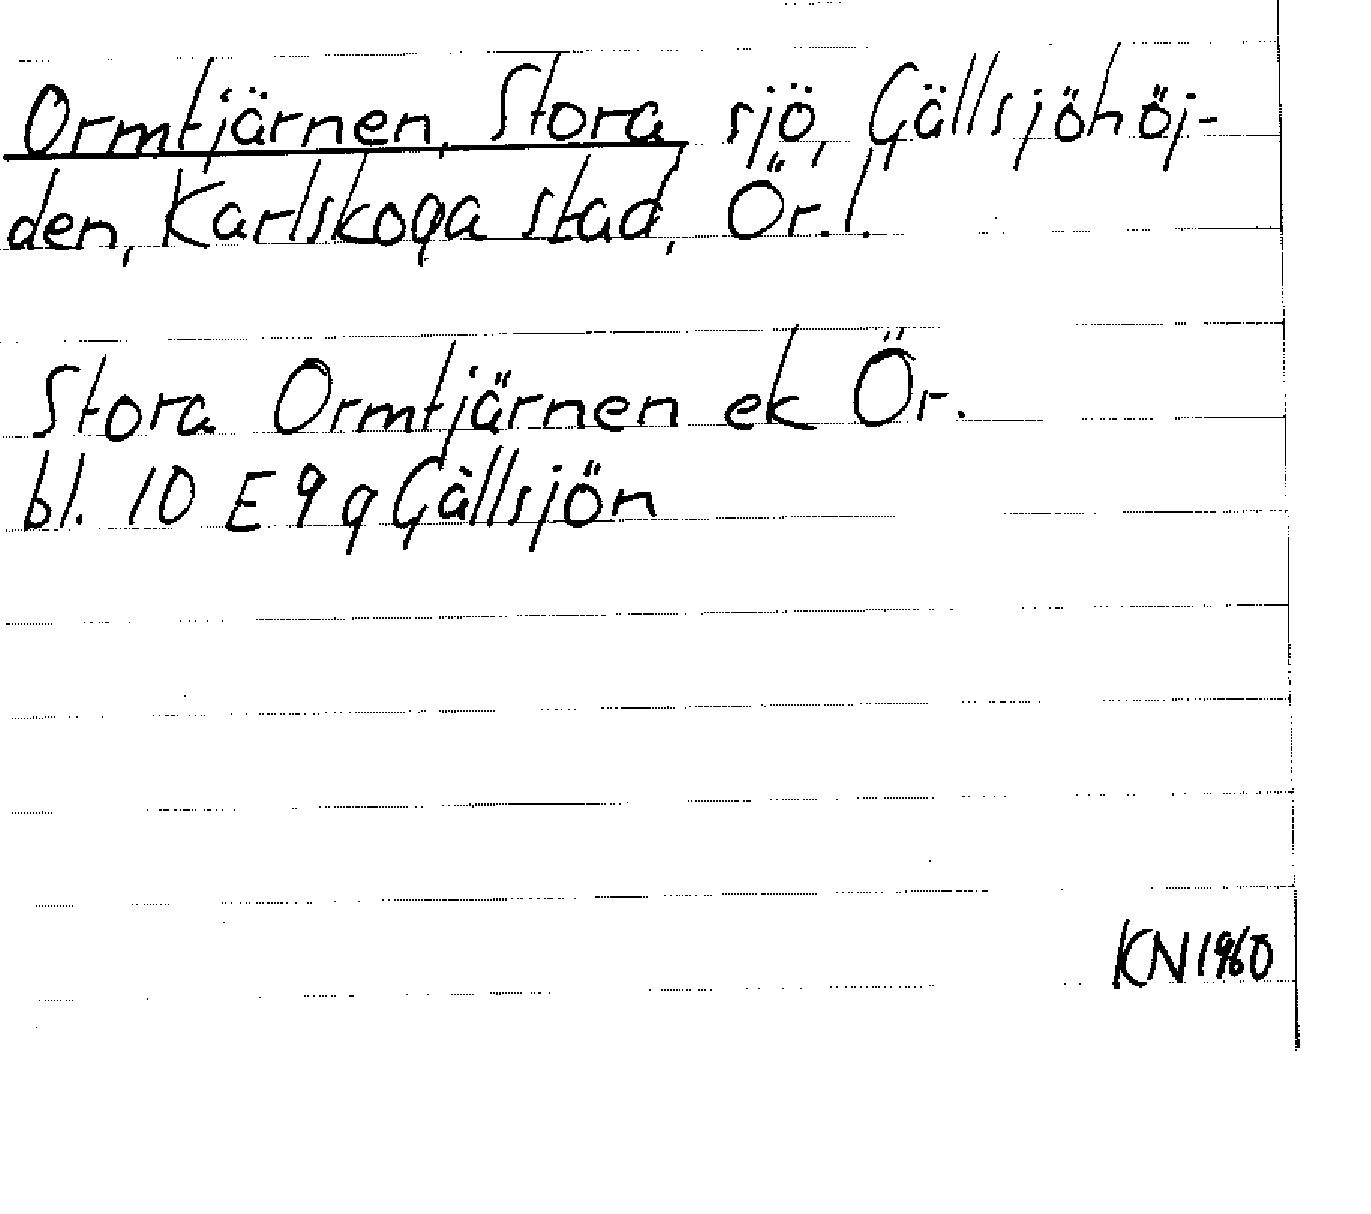 Ormtjärnen, Stora sjö, Gällsjöhöj-
den, Karlskoga stad, Ör. l.
Stora Ormtjärnen ek Ör.
bl. 10 E 9 g Gällsjön
KN 1960